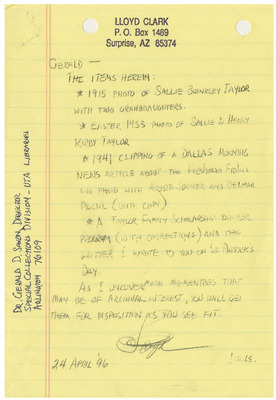 LLOYD CLARK
P. O. Box 1489
Surprise, AZ 85374
GERALD —
THE ITEMS HEREIN:
* 1915 PHOTO OF SALLIE BRINKLEY TAYLOR
WITH TWO GRANDDAUGHTERS.
* EASTER, 1933 PHOTO OF SALLIE & HENRY
KIRBY TAYLOR
* 1941 CLIPPING OF A DALLAS MORNING
NEWS ARTICLE ABOUT THE FRESHMAN FROLIC
AN PHOTO WITH AND
(WITH COPY)
* A TAYLOR FAMILY SCHOLARSHIP DINNER
PROGRAM (WITH CORRECTIONS) AND THE
LETTER I WROTE TO YOU ON ST. PATRICKS
DAY.
AS I UNCOVER MORE MEMENTOES THAT
MAY BE OF ARCHIVAL INTEREST, YOU WILL GET
THEM FOR DISPOSITION AS YOU SEE FIT.
24 APRIL '96
DR. GERALD D. SAXON, DIRECTOR
SPECIAL COLLECTIONS DIVISION - UTA LIBRARIES
ARLINGTON 76109